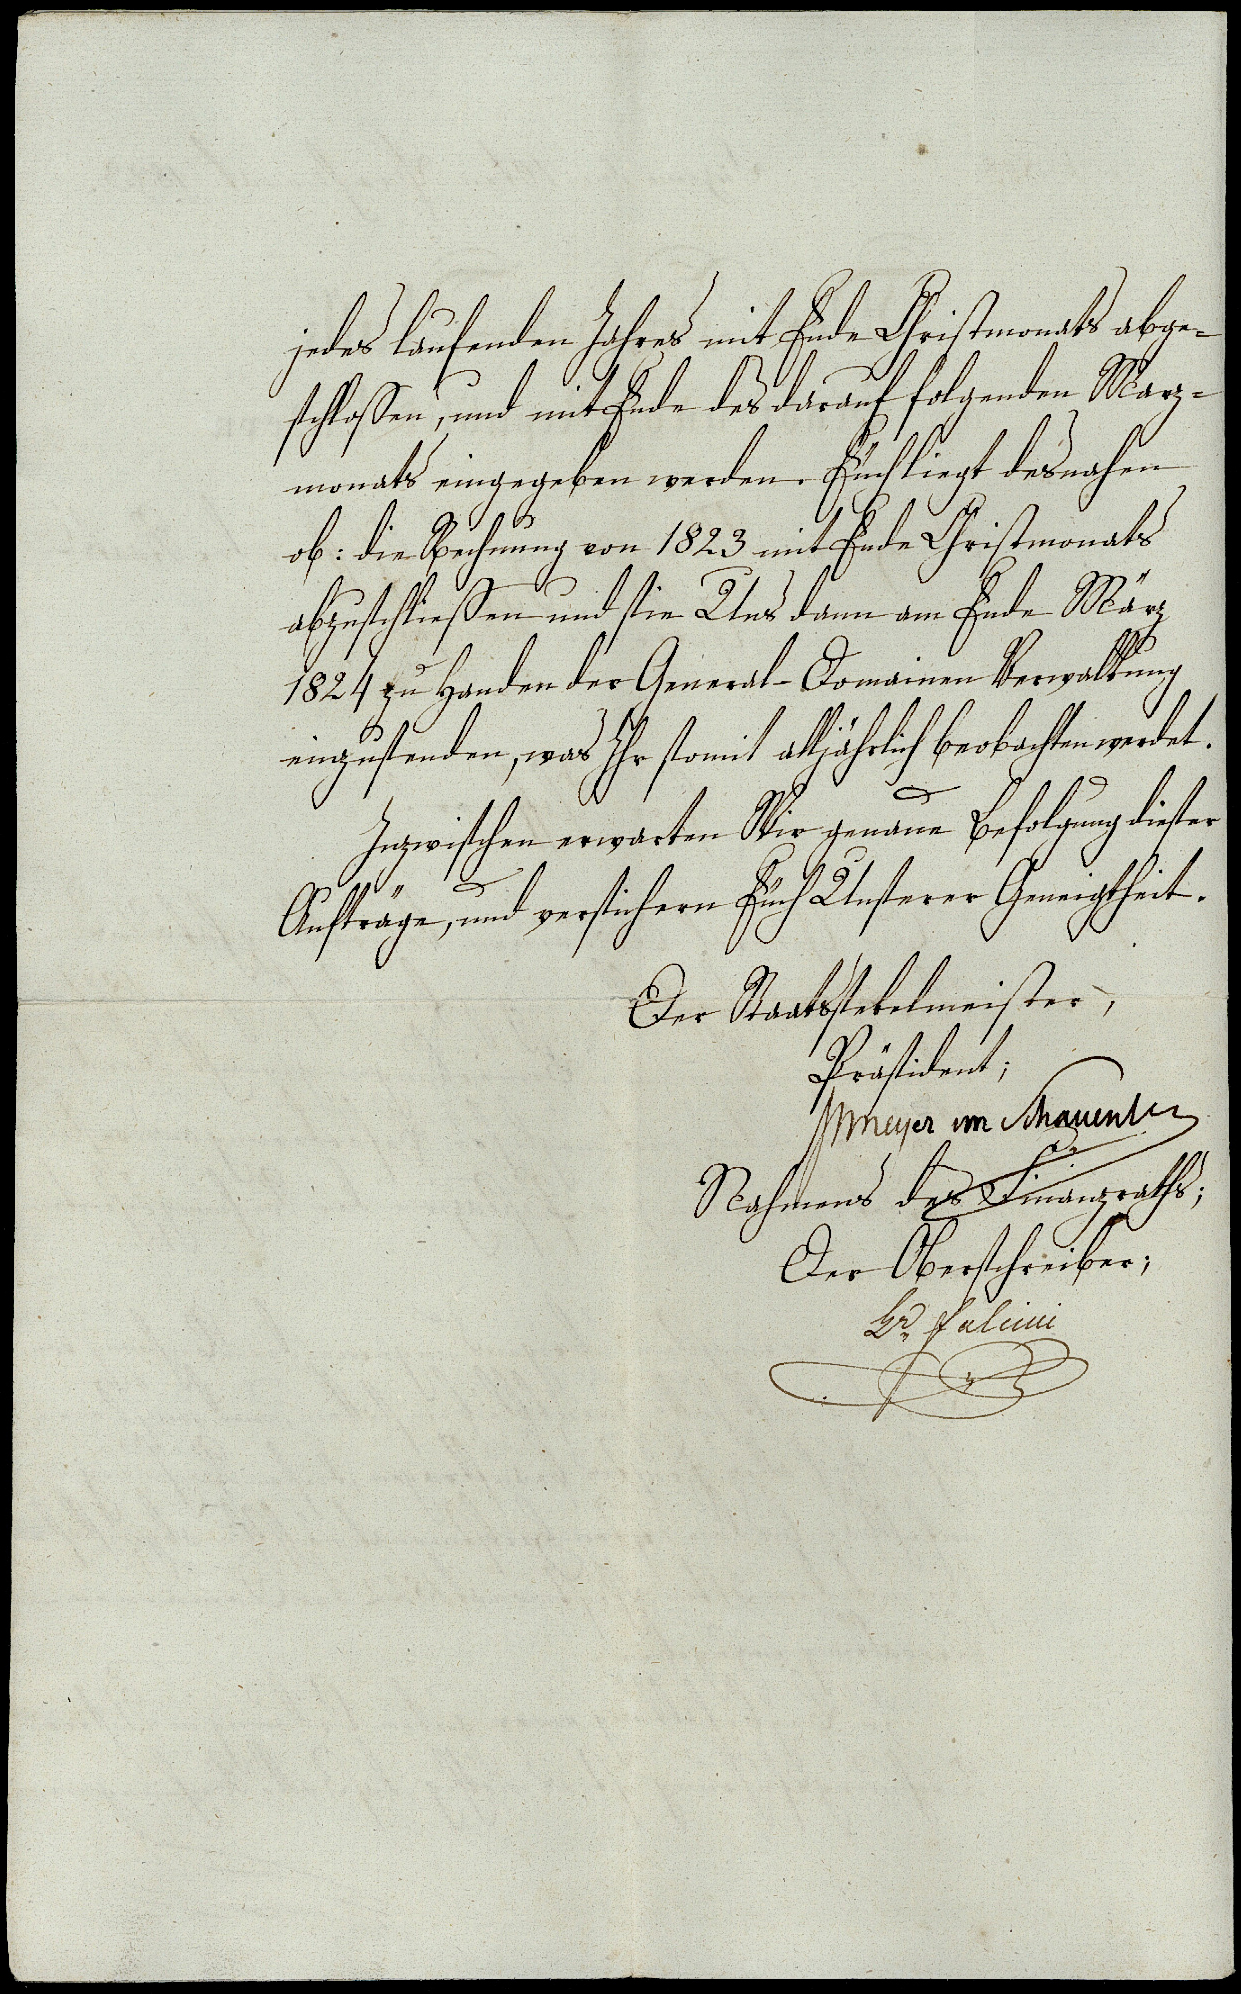 jedes laufenden Jahres mit Ende Christmonats abge-
schlossen, und mit Ende des darauf folgenden Marz-
monats eingegeben werden. Euch liegt desnahen
ob: die Rechnung von 1823 mit Ende Christmonats
abzuschliessen und sie Uns dann am Ende März
1824 zu Handen der General-Domainen Verwaltung
einzusenden, was Ihr somit alljährlich beobachten werdet.
Inzwischen erwarten Wir genaue Befolgung dieser
Aufträge, und versichern Euch Unserer Geneigtheit.
Der Staatsseckelmeister,
Präsident;
Meyer von Schauensee
Nahmens des Finanzraths;
Der Oberschreiber;